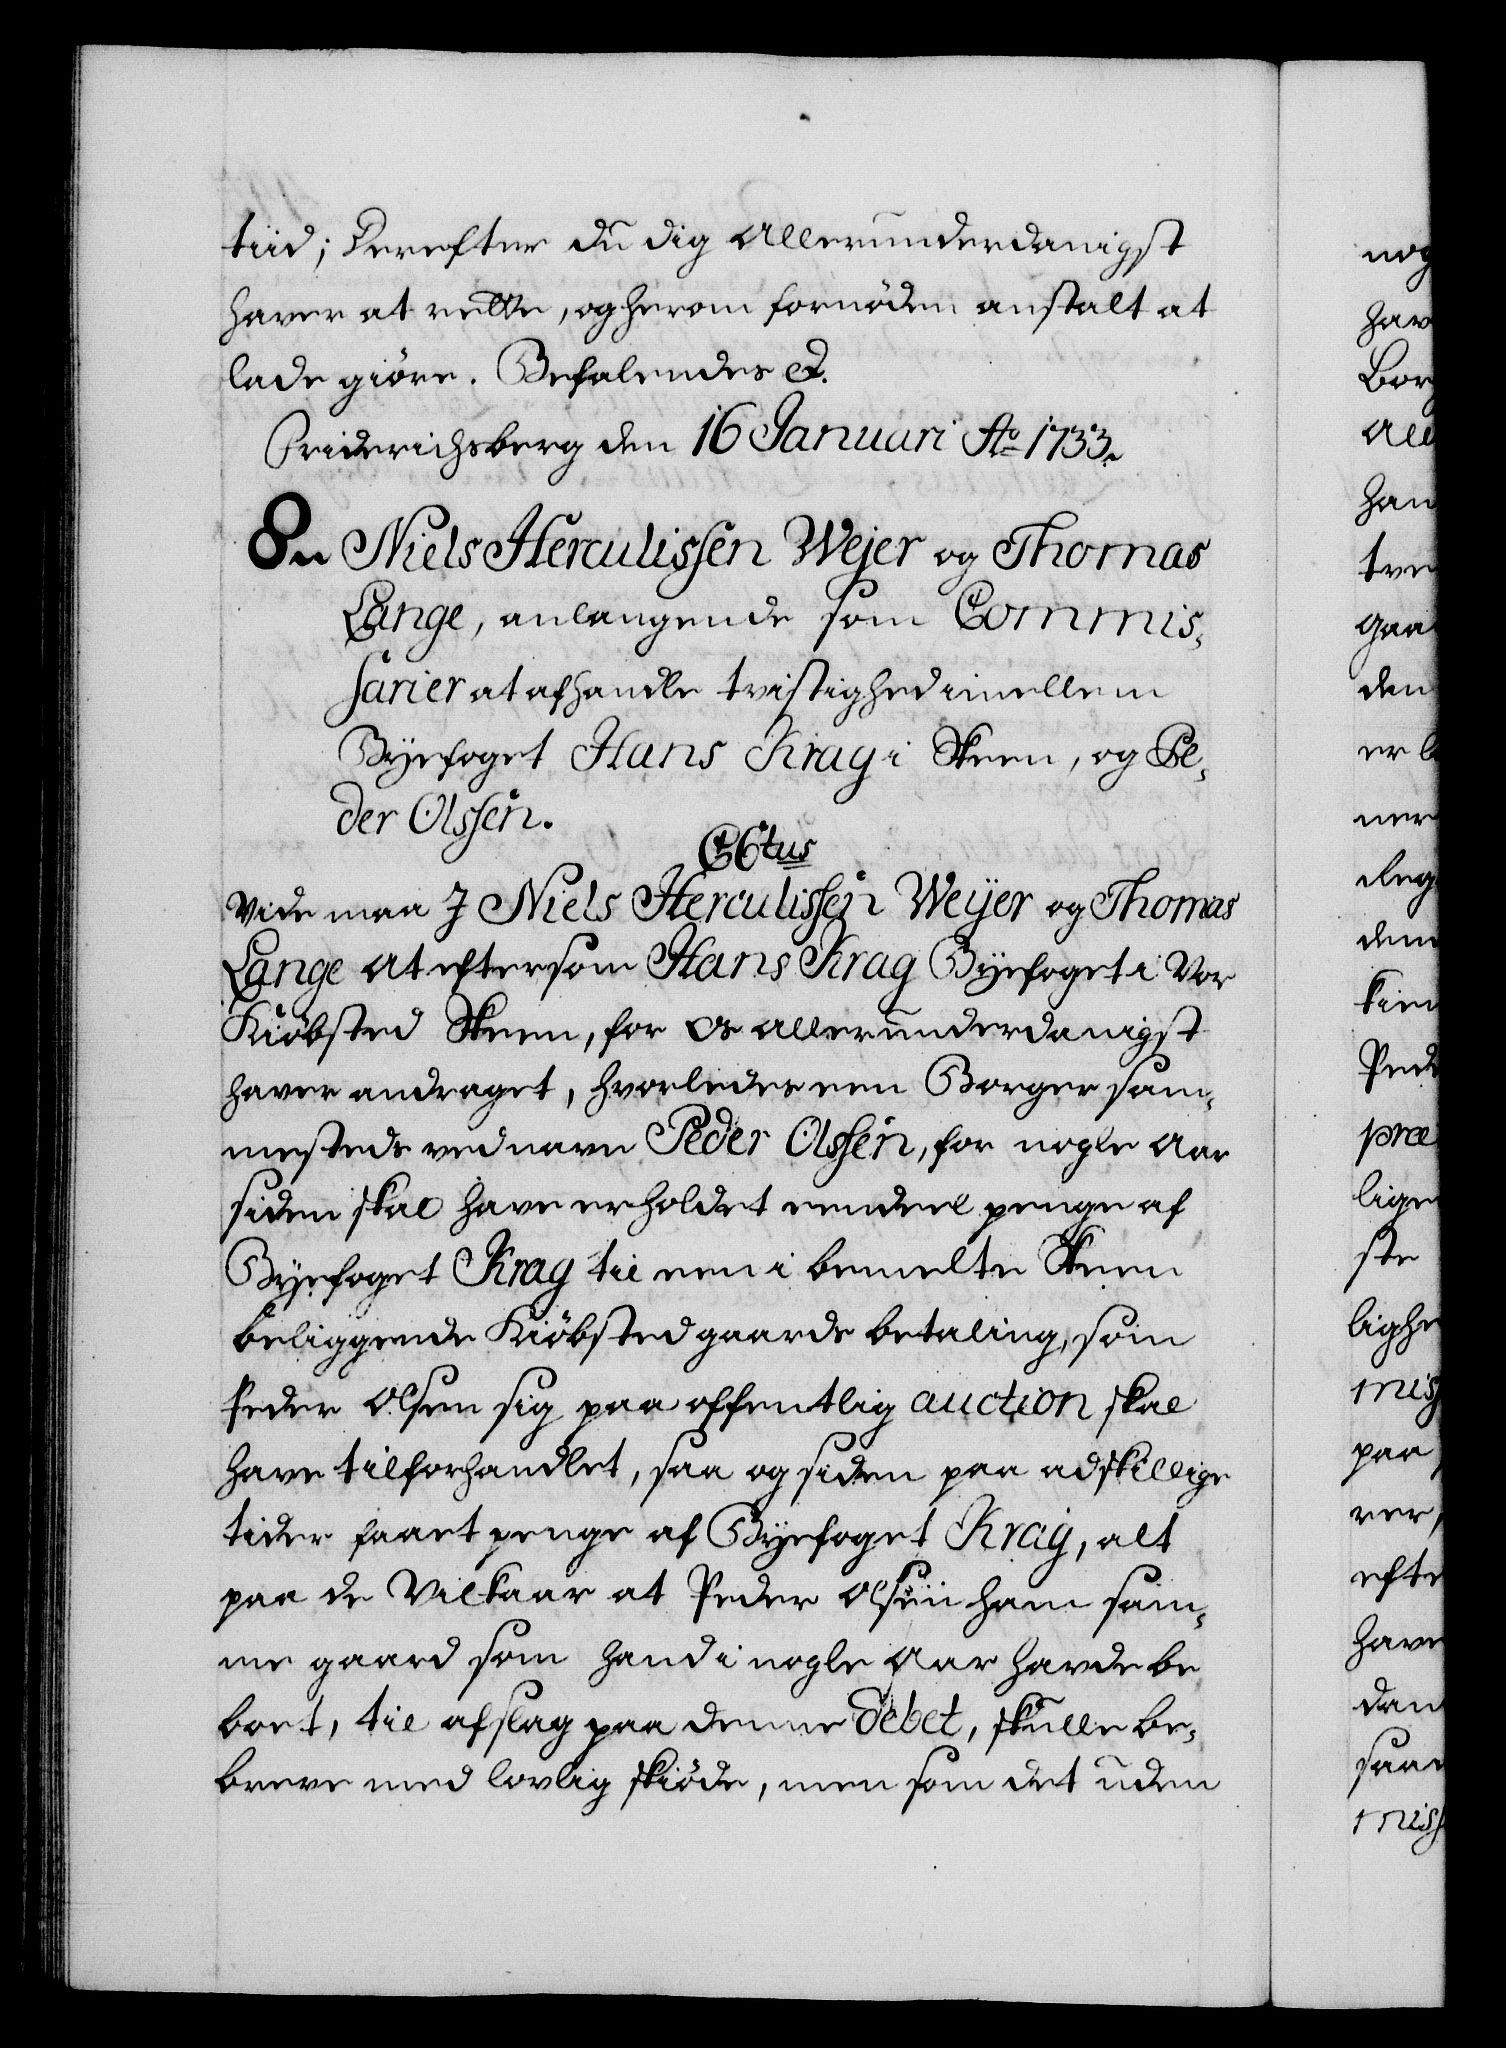 tiid; Derefter du dig Allerunderdanigst
haver at rette, og herom fornøden anstalt at
lade giøre. Befalendes &.
Friderichsberg den 16 Januari Ao 1733.
8. Niels Herculissen Wejer og Thomas
Lange, anlangende som Commis,
sarier at afhandle tvistighed imellem
Byefoget Hans Krag i Skeen, og Pe,
der Olssen.
C6tus
Vide maa I Niels Herculissen Weyer og Thomas
Lange at eftersom Hans Krag Byefoget i Vor
Kiøbsted Skeen, for os allerunderdanigst
haver andraget, hvorledes een Borger sam,
mesteds ved navn Peder Olssen, for nogle Aar
siden skal have erholdet eendeel penge af
Byefoget Krag til een i bemelte Skeen
beliggende Kiøbsted gaards betaling, som
Peder Olsen sig paa offentlig auction skal
have tilforhandlet, saa og siden paa adskillige
tider faaet penge af Byefoget Krag, alt
paa de Vilkaar at Peder Olsen ham sam,
me gaard som hand i nogle Aar havde be
boet, til afslag paa denne debet, skulle be,
breve med lovlig skiøde, men som det uden
nog
hav
Bor
All
han
tve
gaa
den
er b
ner
deg
dem
kien
Ped
præ
lige
ste
lighe
miss
paa
ver,
efte
have
dan
saa
miss